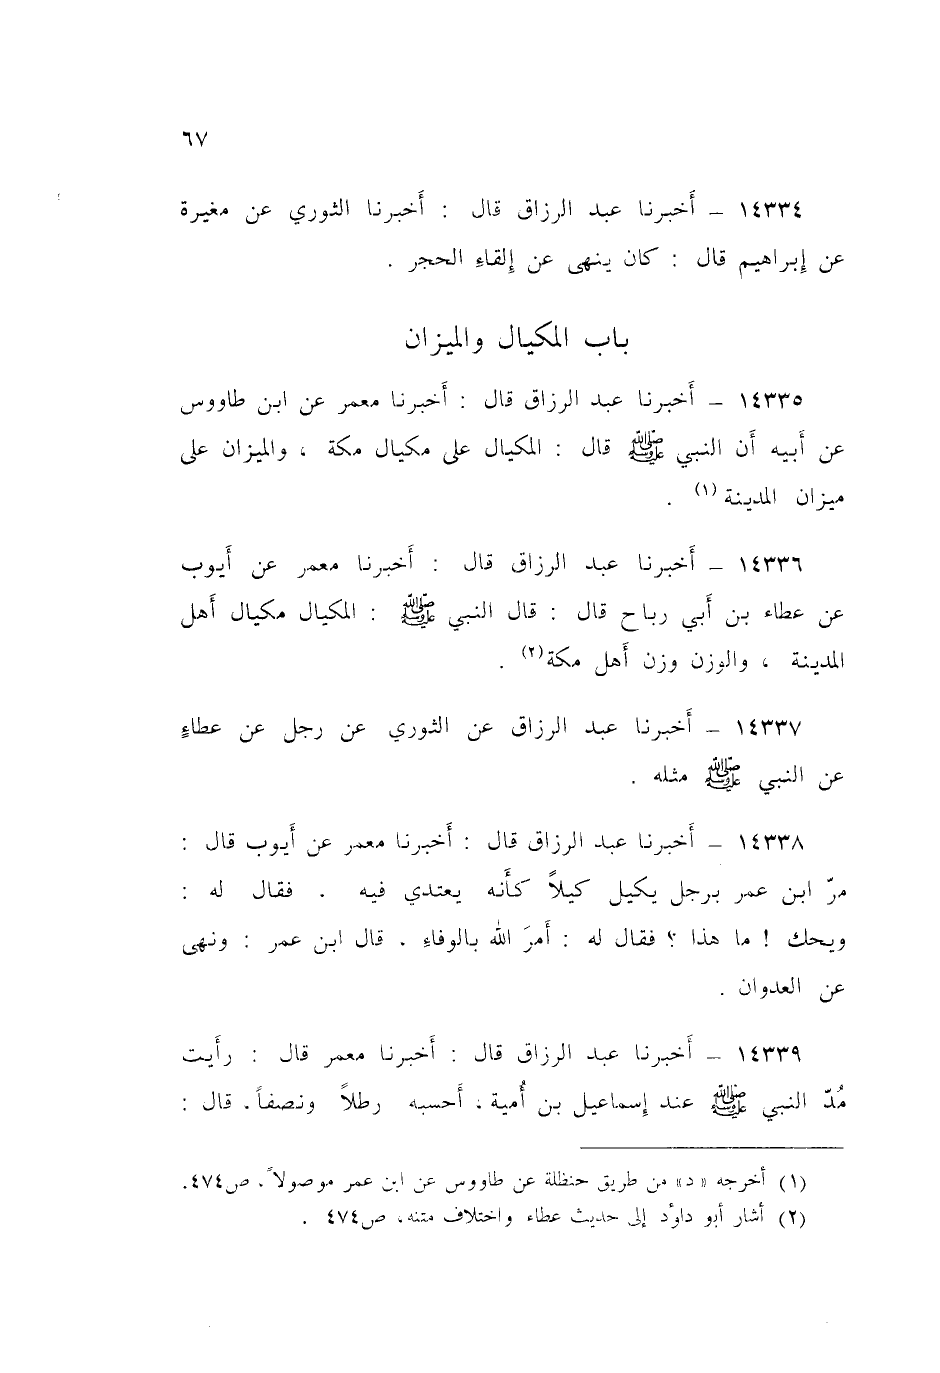 ٦٧
١٤٣٣٤ – أَخبرنا عبد الرزاق قال : أَخبرنا الثوري عن مغيرة
عن إِبراهيم قال : كان ينهى عن إِلقاءِ الحجر .
باب المكيال والميزان
١٤٣٣٥ – أَخبرنا عبد الرزاق قال : أَخبرنا معمر عن ابن طاووس
عن أَبيه أَن النبي ﷺ قال : المكيال على مكيال مكة ، والميزان على
ميزان المدينة (١) .
١٤٣٣٦ – أَخبرنا عبد الرزاق قال : أَخبرنا معمر عن أَيوب
عن عطاء بن أَبي رباح قال : قال النبي ﷺ : المكيال مكيال أَهل
المدينة ، والوزن وزن أَهل مكة(٢) .
١٤٣٣٧ – أَخبرنا عبد الرزاق عن الثوري عن رجل عن عطاءٍ
عن النبي ﷺ مثله .
١٤٣٣٨ – أَخبرنا عبد الرزاق قال : أَخبرنا معمر عن أَيوب قال :
مرّ ابن عمر برجل يكيل كيلاً كأَنه يعتدي فيه . فقال له :
ويحك ! ما هذا ؟ فقال له : أَمرَ الله بالوفاءِ . قال ابن عمر : ونهى
عن العدوان .
١٤٣٣٩ – أَخبرنا عبد الرزاق قال : أَخبرنا معمر قال : رأَيت
مُدّ النبي ﷺ عند إِسماعيل بن أُمية ، أَحسبه رطلاً ونصفاً . قال :
(١) أخرجه «د» من طريق حنظلة عن طاووس عن ابن عمر موصولاً، ص٤٧٤.
(٢) أشار أبو داوٗد إلى حديث عطاء واختلاف متنه، ص٤٧٤ .